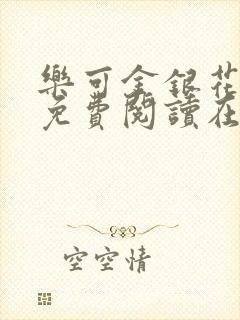 樂可金銀花
免費閱讀在
空空情